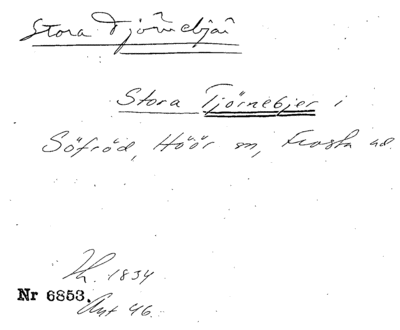 Stora Tjörnebjär
Stora Tjörnebjer i
Söfröd, Höör sn, Frosta hd.
Lh. 1834
Nr 6853.
Akt 46.